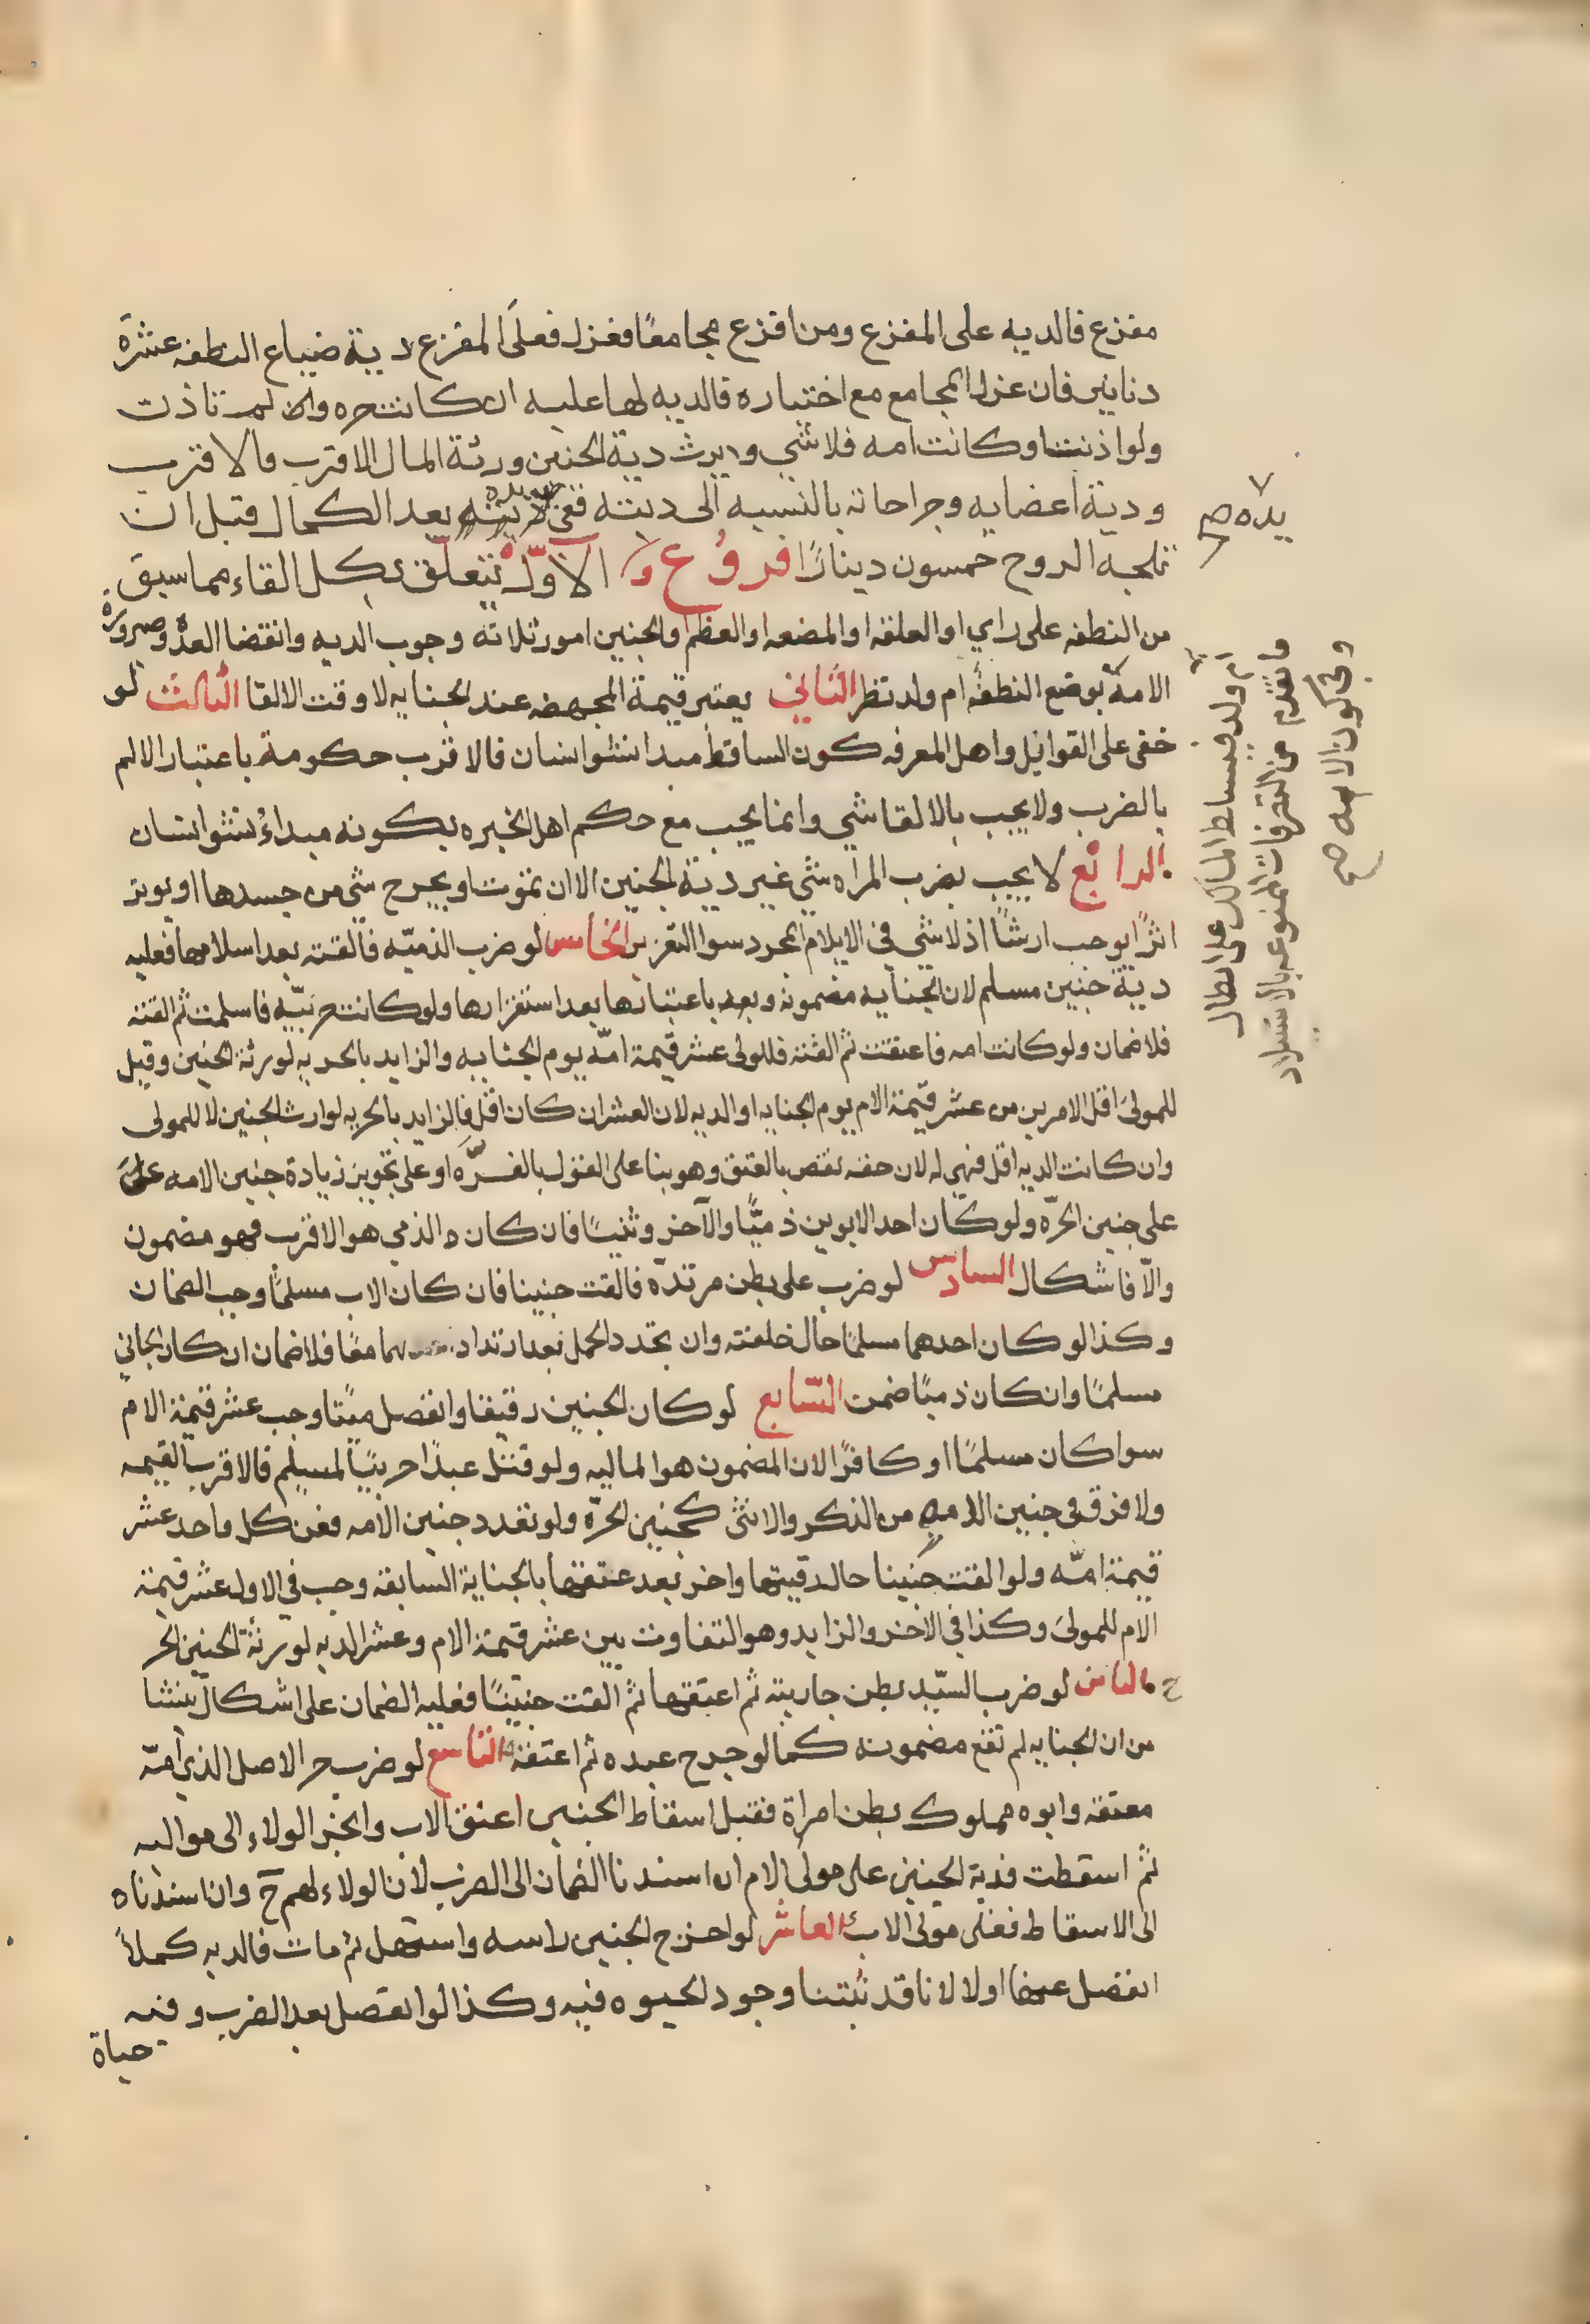 مفزع فالديه على المفزع ومن افزع مجامعًا فعزل فعلى المفزع دية ضياع النطفه عشرة
دنانير فان عزل المجامع مع اختياره فالديه لها عليه ان كانت حره وان لم تاذت
ولو اذنت او كانت امه فلا شي ويرث دية الجنين ورثة المال الاقرب فالاقرب
ودية اعضايه وجراحاته بالنسبه الى ديته ففى يده بعد الكمال قبل ان
تلجه الروح خمسون دينارًا فروع الاوّل يتعلق بكل القاء مما سبق
من النطفه على راي او العلقه او المضغه او العظم او الجنين امور ثلاثه وجوب الديه وانقضا العده وصيرورة
الامة بوضع النطفه ام ولد نظر الثاني يعتبر قيمة المجهضه عند الجنايه لا وقت الالقا الثالث لو
خفى على القوابل واهل المعرفه كون الساقط مبدا نشو انسان فالاقرب حكومة باعتبار الالم
بالضرب ولا يجب بالالقا شي وانما يجب مع حكم اهل الخبره بكونه مبداء نشو انسان
الرابع لا يجب بضرب المراه شي غير دية الجنين الا ان تموت او يجرح شي من جسدها او يوثر
اثرًا يوجب ارشًا اذ لا شي في الايلام المجرد سوا التعزير الخامس لو ضرب الذميّه فالقته بعد اسلامها فعليه
دية جنين مسلم لان الجنايه مضمونه وبعد باعتبارها بعد استقرارها ولو كانت حربيّه فاسلمت ثم القته
فلا ضمان ولو كانت امه فاعتقت ثم القته فللولى عشر قيمة امّه يوم الجنايه والزايد بالحريه لورثة الجنين وقيل
للمولى اقل الامرين من عشر قيمة الام يوم الجنايه او الديه لان العشر ان كان اقل فالزايد بالحريه لوارث الجنين لا للمولى
وان كانت الديه اقل فهى له لان حقه نقص بالعتق وهو بنا على القول بالغرّه او على تجويز زيادة جنين الامه على
على جنين الحرّه ولو كان احد الابوين ذميًّا والآخر وثنيًا فان كان الذمي هو الاقرب فهو مضمون
والّا فاشكال السادس لو ضرب على بطن مرتدّه فالقت جنينا فان كان الاب مسلمًا وجب الضمان
وكذا لو كان احدهما مسلمًا حال خلقته وان تجدد الحمل بعد ارتدادهما معًا فلا ضمان ان كان الجاني
مسلمًا وان كان ذميًا ضمن السّابع لو كان الجنين رقيقا وانفصل ميّتًا وجب عشر قيمة الام
سوا كان مسلمًا او كافرًا لان المضمون هو الماليه ولو قتل عبدًا حربيًا لمسلم فالاقرب القيمه
ولا فرق في جنين الامه من الذكر والانثى كجنين الحرّه ولو تعدد جنين الامه فعن كل واحد عشر
قيمة امّه ولو القت جنينا حال رقيتها واخر بعد عتقها بالجناية السابقه وجب في الاول عشر قيمة
الام للمولى وكذا في الاخر والزايد وهو التفاوت بين عشر قيمة الام وعشر الديه لورثة الجنين الحر
الثامن لو ضرب السيّد بطن جاريته ثم اعتقها ثم القت جنينًا فعليه الضمان على اشكال ينشا
من ان الجنايه لم تقع مضمونه كما لو جرح عبده ثم اعتقه التاسع لو ضرب حر الاصل الذي امّه
معتقه وابوه مملوك بطن امراة فقبل اسقاط الجنين اعتق الاب وانجر الولاء الى مواليه
ثم اسقطت فدية الجنين على مولى الام ان اسندنا الضمان الى الضرب لان الولاء لهم ح وان اسندناه
الى الاسقاط فعلى مولى الاب العاشر لو اخرج الجنين راسه واستهل ثم مات فالديه كملا
انفصل عنها او لا لانا قد تبتنا وجود الحيوه فيه وكذا لو انفصل بعد الضرب وفيه
حياة
يده صح
ام ولد فيسلط المالك على ابطال
ما تقدم من التصرفات الممنوعه بالاستيلاد
وفى كون الامه صح